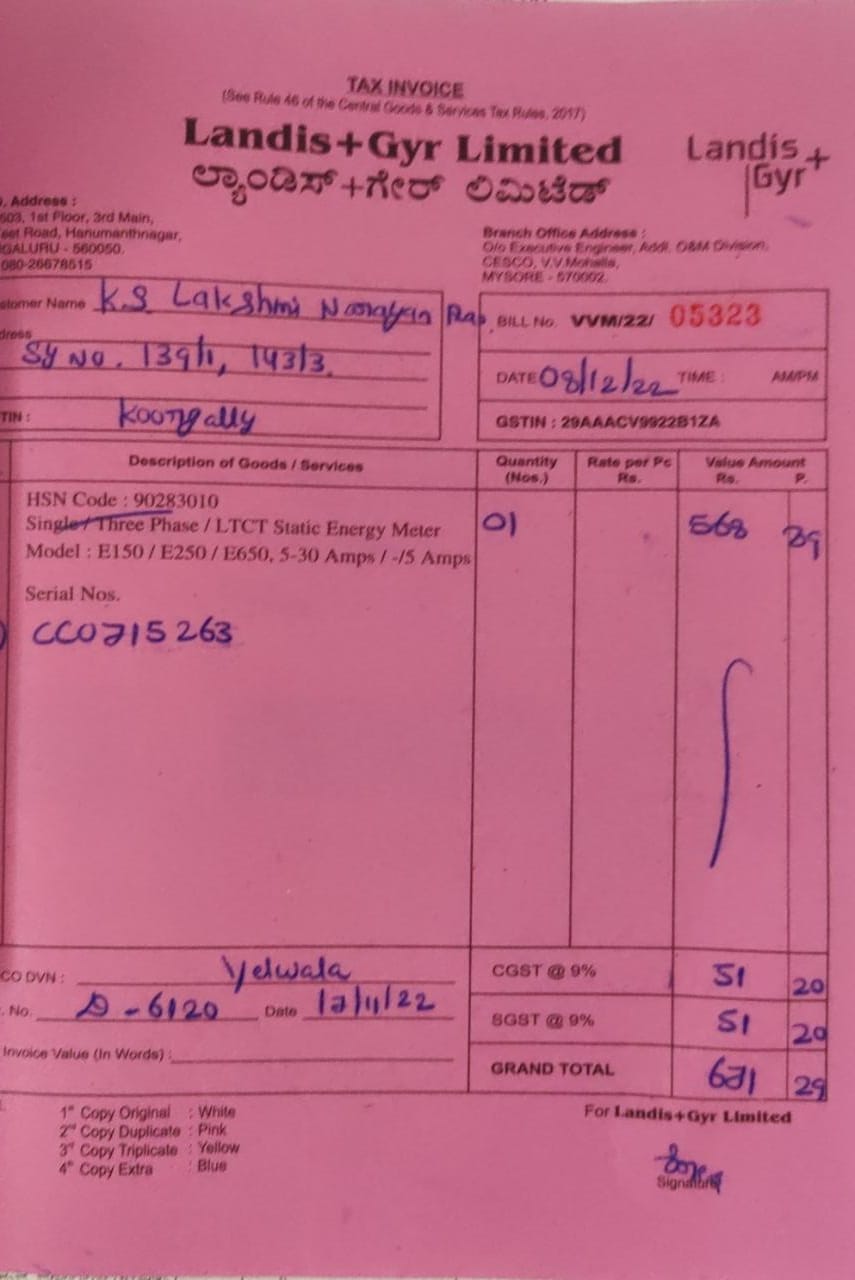 TAX INVOICE
(See Rule 46 of the Central Goods & Services Tax Rules, 2017)
Landis+Gyr Limited
ಲ್ಯಾಂಡಿಸ್+ಗೇರ್ ಲಿಮಿಟೆಡ್
Landis+
Gyr+
. Address :
503, 1st Floor, 3rd Main,
Road, Hanumanthnagar,
GALURU - 560050.
080-26678515
Branch Office Address :
O/o Executive Engineer, Addl. O&M Division,
CESCO, V.V.Mohalla,
MYSORE - 570002.
stomer Name K.S Lakshmi Narayan Rao
dress
Sy No. 139/1, 143/3.
TIN : Koorgally
BILL No. VVM/22/ 05323
DATE 08/12/22 TIME : AM/PM
GSTIN : 29AAACV9922B1ZA
Description of Goods / Services
Quantity (Nos.)
Rate per Pc Rs.
Value Amount
Rs. P.
HSN Code : 90283010
Single / Three Phase / LTCT Static Energy Meter 01 568 39
Model : E150 / E250 / E650, 5-30 Amps / -/5 Amps
Serial Nos.
CC0715263
CO DVN : Yelwala
. No. D-6120 Date 17/11/22
Invoice Value (In Words) :
CGST @ 9% 51 20
SGST @ 9% 51 20
GRAND TOTAL 671 29
1st Copy Original : White
2nd Copy Duplicate : Pink
3rd Copy Triplicate : Yellow
4th Copy Extra : Blue
For Landis+Gyr Limited
Signature